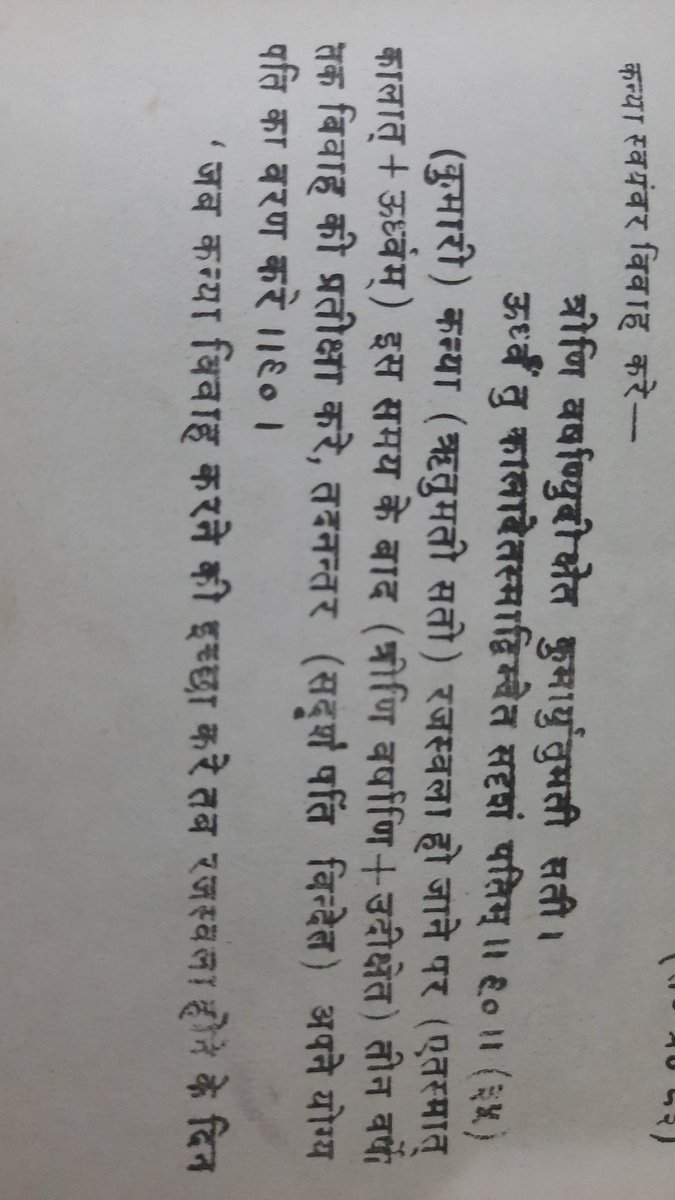 कन्या स्वयंवर विवाह करे—
त्रीणि वर्षाण्युदीक्षेत कुमार्यृतुमती सती ।
ऊर्ध्वं तु कालादेतस्माद्विन्देत सदृशं पतिम् ॥ ९० ॥ (३५)
(कुमारी) कन्या (ऋतुमती सती) रजस्वला हो जाने पर (एतस्मात्
कालात् + ऊर्ध्वम्) इस समय के बाद (त्रीणि वर्षाणि + उदीक्षेत) तीन वर्ष
तक विवाह की प्रतीक्षा करे, तदनन्तर (सदृशं पतिं विन्देत) अपने योग्य
पति का वरण करे ॥९० ।
‘जब कन्या विवाह करने की इच्छा करे तब रजस्वला होने के दिन